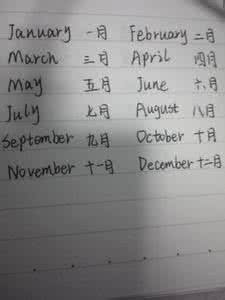 January 一月 February 二月
March 三月 April 四月
May 五月 June 六月
July 七月 August 八月
September 九月 October 十月
November 十一月 December 十二月